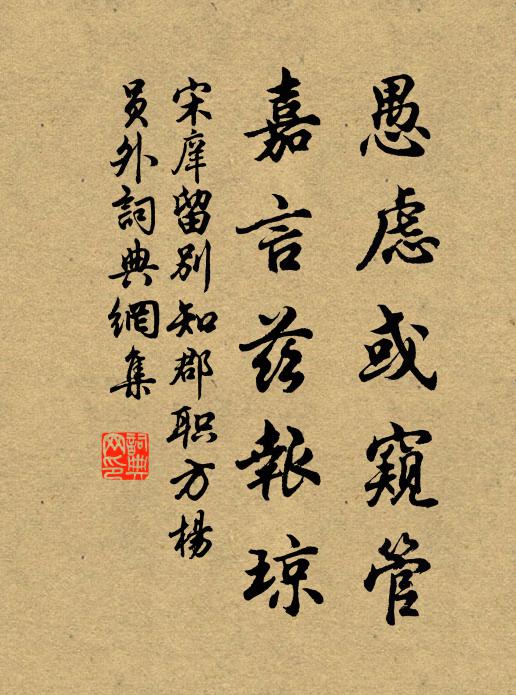 愚慮或窺管
嘉言茲報琼
宋庠留别知郡职方楊
員外詞典網集
詞典网印